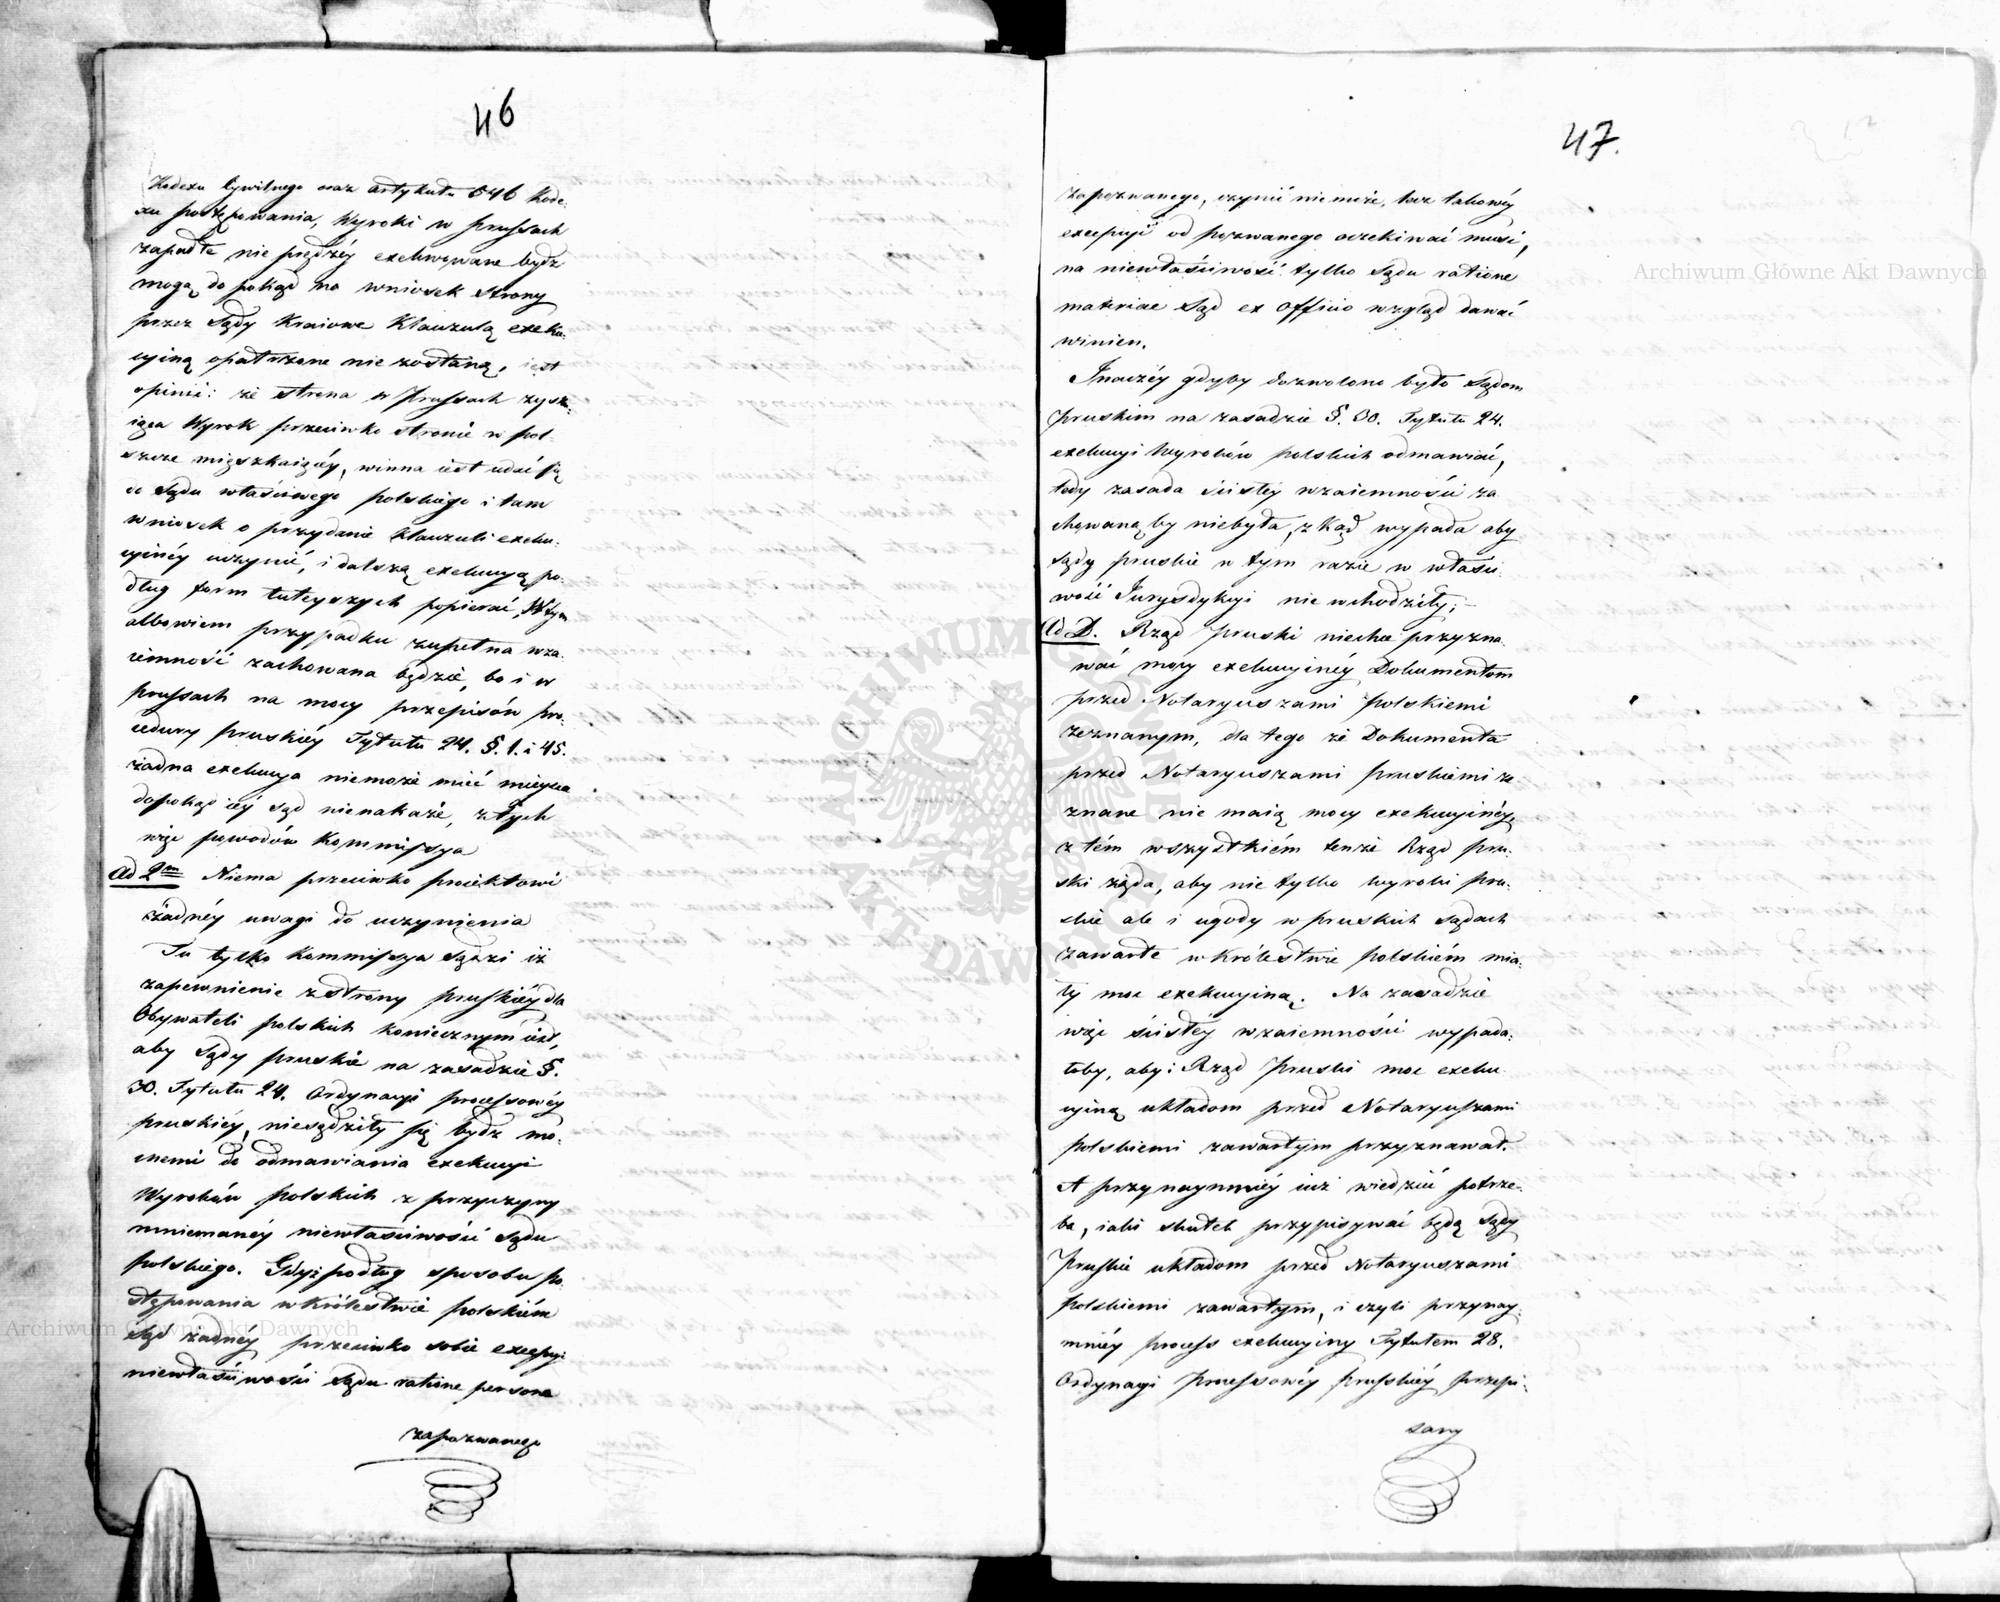 46
Kodexu Cywilnego oraz artykułu 546 Kode-
xu postępowania, Wyroki w Prussach
zapadłe nie prędzéy exekwowane bydz
mogą do pokąd na wniosek Strony
przez Sądy Kraiowe Klauzulą exeku-
cyiną opatrzone nie zostaną, iest
opinii: że strona w Prussach zysk-
iąca Wyrok przeciwko stronie w Pol-
szcze mięszkaiącéy, winna iest udać się
do Sądu właściwego polskiego i tam
wniosek o przydanie Klauzuli exeku-
cyinéy uczynić, i dalszą exekucyą po-
dług form tuteyszych popierać, W tym
albowiem przypadku zupełna wza-
iemność zachowana będzie, bo i w
Prussach na mocy przepisów pro-
cedury pruskiéy Tytułu 24. §. 1. i 45.
żadna exekucya niemoże mieć mieysca
dopokąd iéy sąd nienakaże, z tych
więc powodów Kommissya
Ad 2um Niema przeciwko proiektowi
żadnéy uwagi do uczynienia
Tu tylko Kommissya sądzi iż
zapewnienie z strony pruskiéy dla
Obywateli polskich koniecznym iest,
aby Sądy pruskie na zasadzie §.
30. Tytułu 24. Ordynacyi processowéy
pruskiéy, niesądziły się bydz mo-
cnemi do odmawiania exekucyi
Wyroków polskich z przyczyny
mniemanéy niewłaściwości Sądu
polskiego. Gdyż podług sposobu po-
stępowania w Królestwie polskiém
Sąd żadnéy przeciwko sobie excepcyi
niewłaściwości Sądu ratione persona
zapozwanego
47.
zapozwanego, czynić niemoże, lecz takowéy
excepcyi od pozwanego oczekiwać musi,
na niewłaściwość tylko Sądu ratione
materiae Sąd ex officio wzgląd dawać
winien.
Inaczéy gdyby dozwolono było Sądom
Pruskim na zasadzie §. 30. Tytułu 24.
exekucyi Wyroków polskich odmawiać,
tedy zasada ścisłéy wzaiemności za-
chowaną by niebyła, zkąd wypada aby
sądy pruskie w tym razie w właści-
wość Jurysdykcyi nie wchodziły; —
Ad D. Rząd Pruski niechce przyzna-
wać mocy exekucyinéy Dokumentom
przed Notaryuszami Polskiemi
zeznanym, dla tego że Dokumenta
przed Notaryuszami Pruskiemi ze-
znane nie maią mocy exekucyinéy,
z tém wszystkiém tenże Rząd pru-
ski żąda, aby nie tylko wyroki pru-
skie ale i ugody w pruskich Sądach
zawarte w Królestwie Polskiém mia-
ły moc exekucyiną. Na zasadzie
więc ścisłéy wzaiemności wypada-
łoby, aby i Rząd Pruski moc exeku-
cyiną układom przed Notaryuszami
Polskiemi zawartym przyznawał.
A przynaymniéy iuż wiedzieć potrze-
ba, iaki skutek przypisywać będą Sądy
Pruskie układom przed Notaryuszami
Polskiemi zawartym, i czyli przynay-
mniéy process exekucyiny Tytułem 28.
Ordynacyi Processowéy Pruskiéy przepi-
sany
Archiwum Główne Akt Dawnych
Archiwum Główne Akt Dawnych
ARCHIWUM GŁÓWNE AKT DAWNYCH